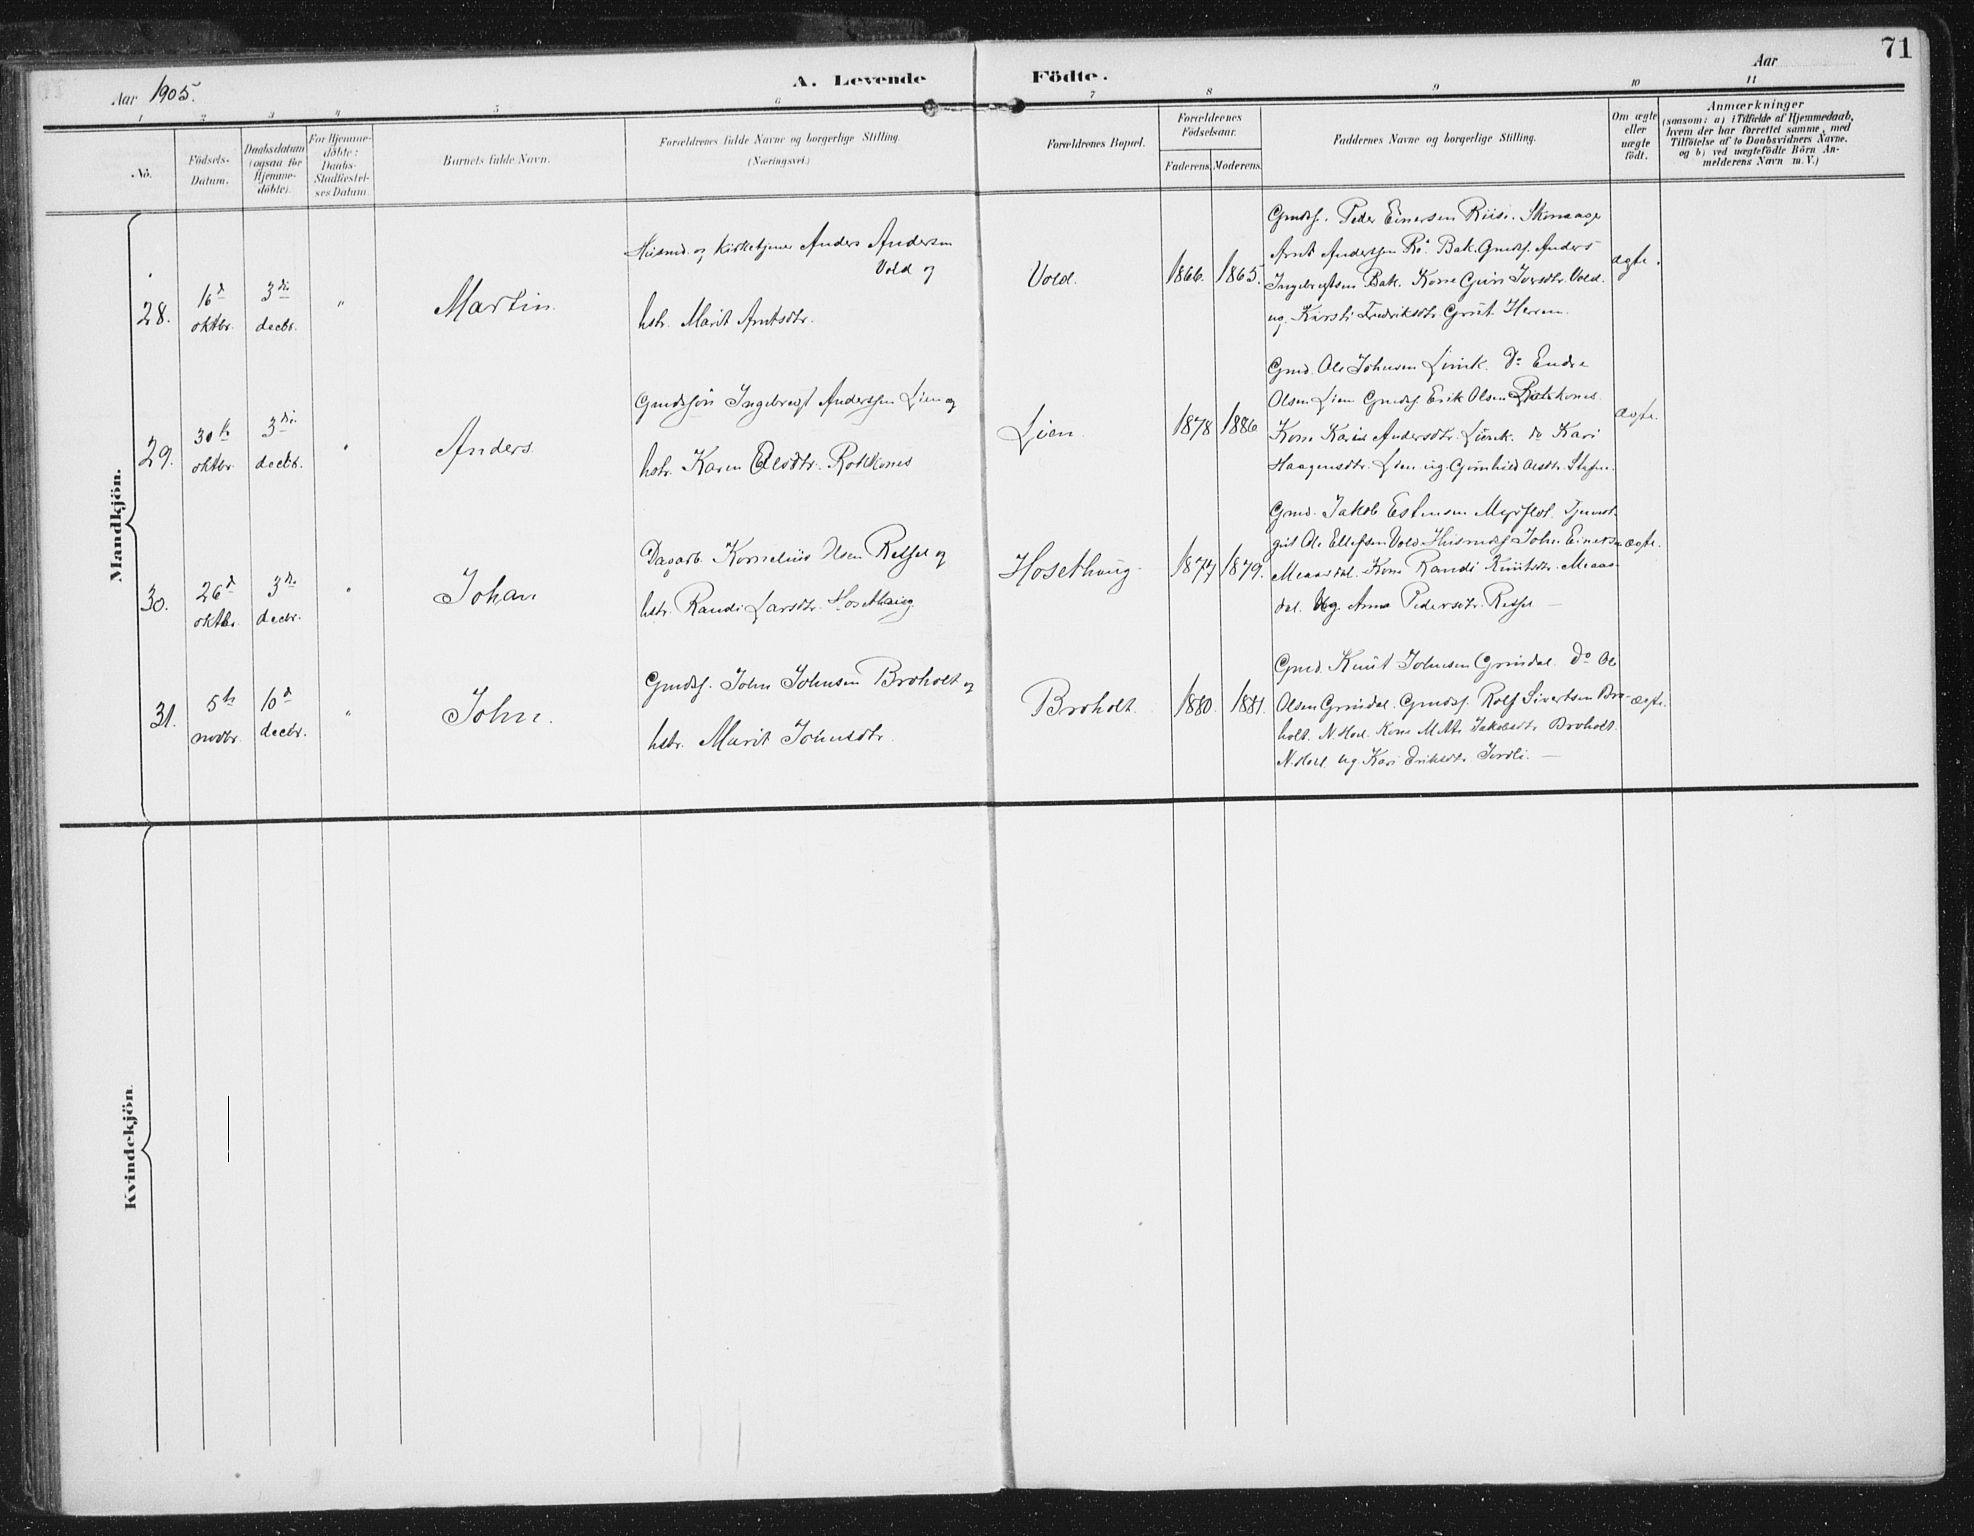 71
A. Levende Födte.
Aar 1905. Aar
1 2 3 4 5 6 7 8 9 10 11
No.
Födsels-
Datum.
Daabsdatum
(ogsaa for
Hjemme-
döbte).
For Hjemme-
döbte:
Daabs-
Stadfæstel-
ses Datum
Barnets fulde Navn.
Forældrenes fulde Navne og borgerlige Stilling.
(Næringsvei.)
Forældrenes Bopæl.
Forældrenes
Födselsaar.
Faderens. Moderens.
Faddernes Navne og borgerlige Stilling.
Om ægte
eller
uægte
födt.
Anmærkninger
(saasom: a) i Tilfælde af Hjemmedaab,
hvem der har forrettet samme, med
Tilföielse af to Daabsvidners Navne.
og b) ved uægtefödte Börn An-
melderens Navn m. V.)
Mandkjön.
28.
16d
oktbr.
3di
decbr.
"
Martin.
Husmd. og Kirketjener Anders Andersen
Vold og
hstr. Marit Arntsdtr.
Vold.
1866. 1865.
Gmdsf. Peder Einersen Riise. Skomager
Arnt Anderssen Rö Bak. Gmdsf. Anders
Ingebregtsen Bak. Kone Guri Iversdtr. Vold.
ug. Kirsti Fredriksdtr. Grut Herrem.
ægte.
29.
30te
oktbr.
3di
decbr.
"
Anders.
Gmdssön Ingebregt Anderssen Lien og
hstr. Karen Olsdtr. Rokkones
Lien.
1878 1886
Gmd. Ole Johnsen Livik. Do Endre
Olsen Lien Gmdsf. Erik Olsen Rokkones.
Kone Karen Andersdtr. Livik. do Kari
Haagensdtr. Lien ug. Gunhild Olsdtr.
ægte.
30.
26d
oktbr.
3di
decbr.
"
Johan
Dagarb. Kornelius Olsen Relsje og
hstr. Randi Larsdtr. Hosethaug.
Hosethaug.
1877 1879.
Gmd. Jakob Estensen Tjeneste-
gut Ole Ellefsen Vold Husmdsf. John Einersen
Meaasdal. Kone Randi Knutsdtr. Meaas-
dal. Ug. Anna Pedersdtr. Relsje —
ægte.
31.
5te
novbr.
10d
decbr.
"
John.
Gmdsf. John Johnsen Broholt og
hstr. Marit Johnsdtr.
Broholt.
1880. 1881.
Gmd. Knut Johnsen Grindal. Do Ole
Olsen Grindal. Gmdsf. Rolf Sivertsen Bro-
holt. N. Hoel. Kone Mette Jakobsdtr. Broholt.
N. Hoel. ug. Kari Eriksdtr. Jordli. —
ægte.
Kvindekjön.